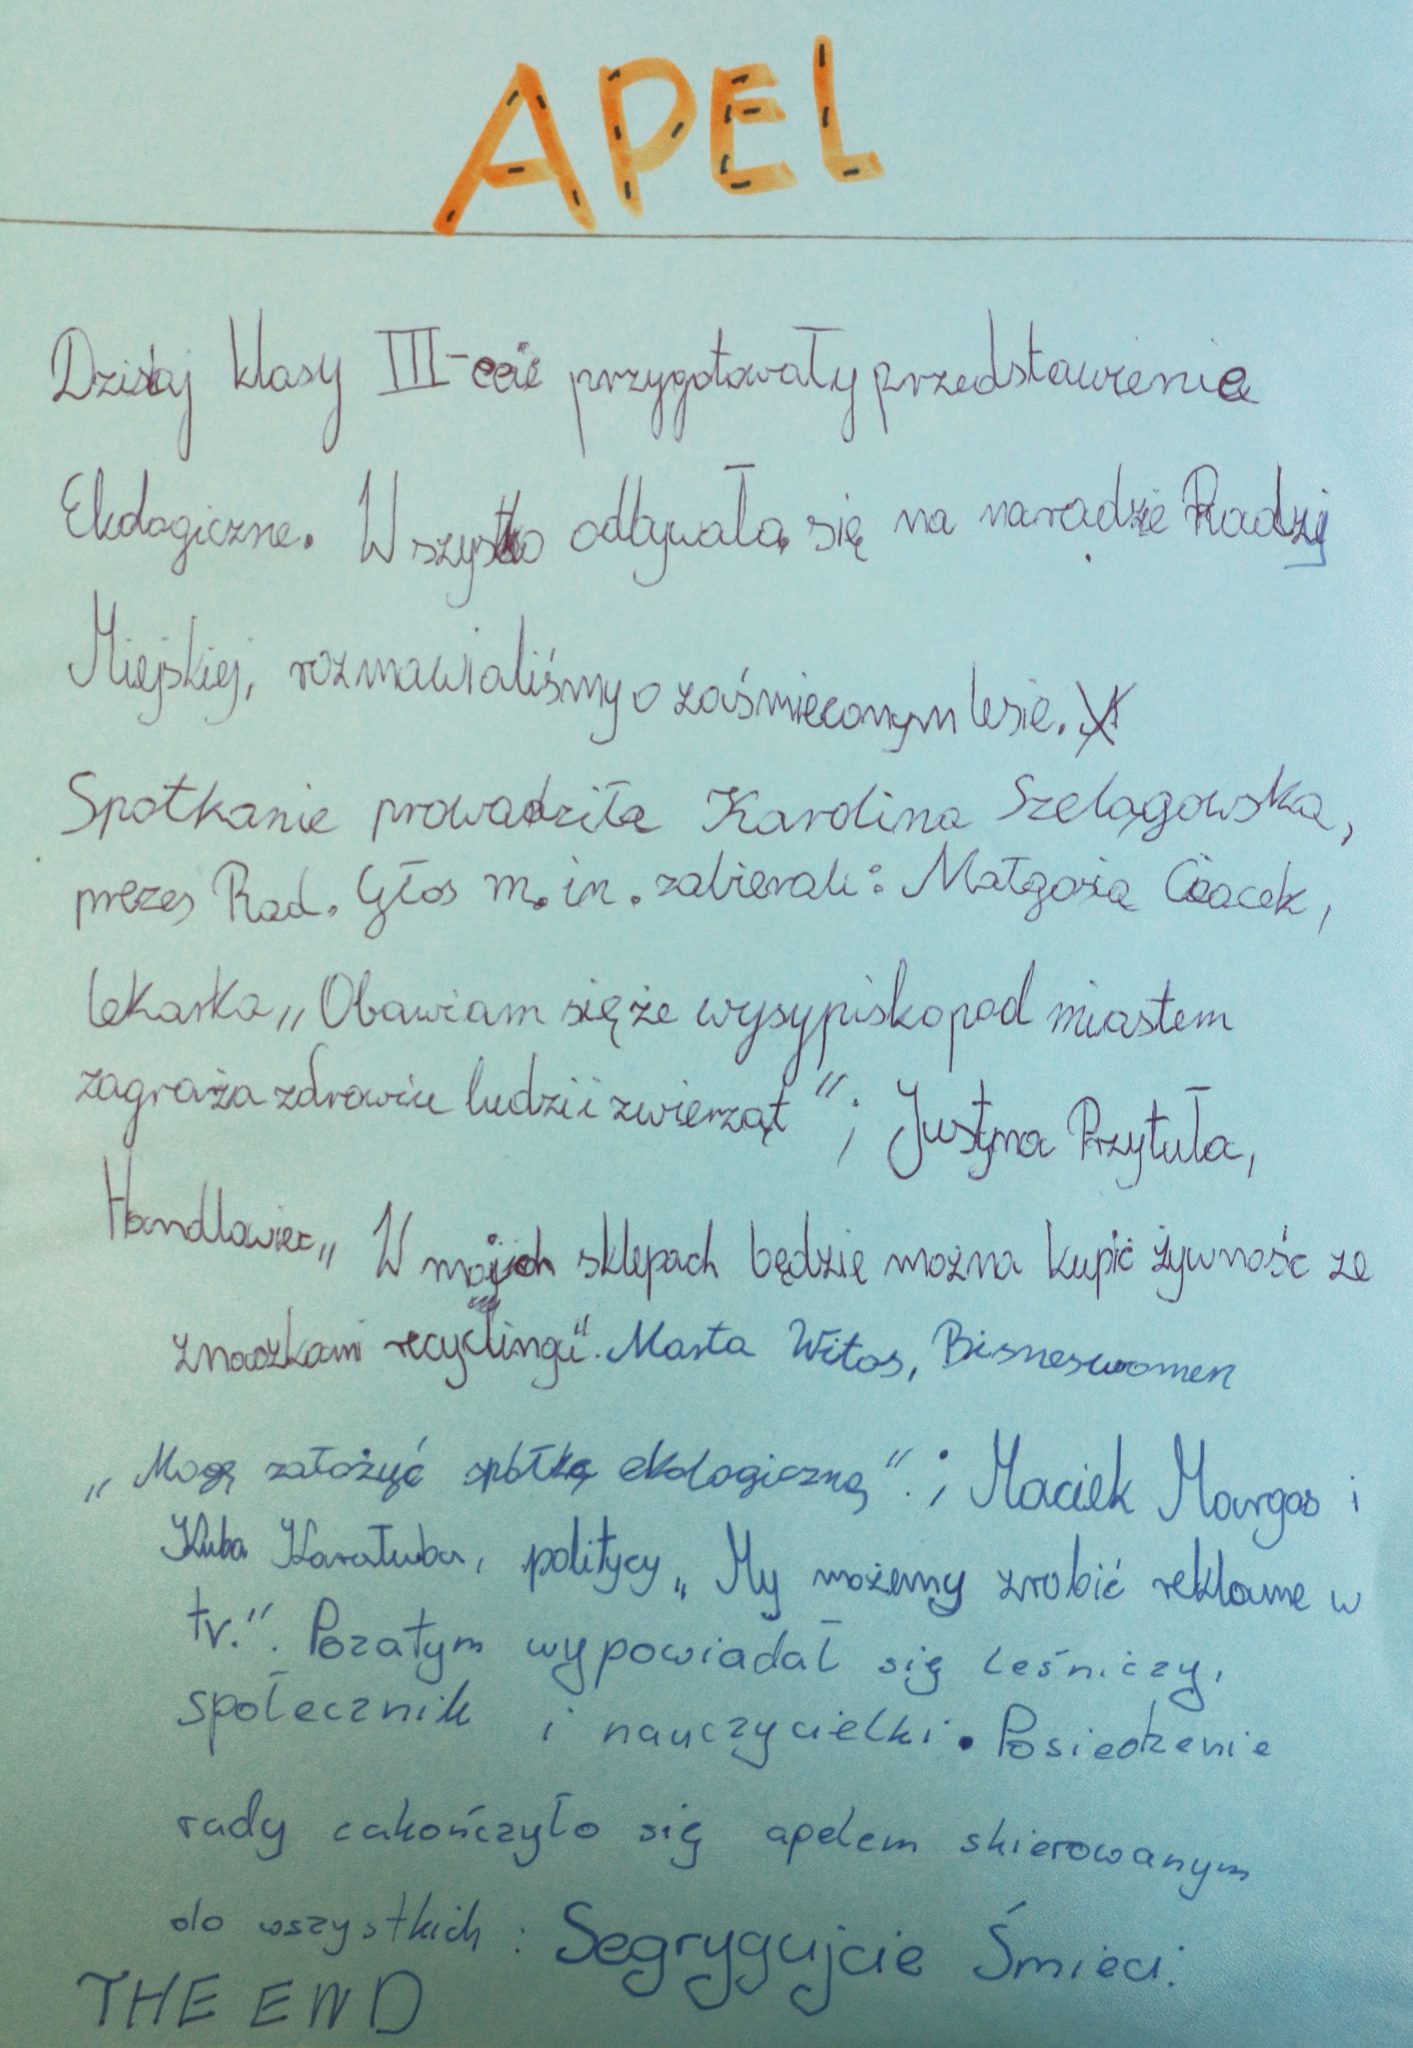 APEL
Dzisiaj klasy III-ecie przygotowały przedstawienie
Ekologiczne. Wszystko odbywało się na naradzie Radzy
Miejskiej, rozmawialiśmy o zaśmieconym lesie.
Spotkanie prowadziła Karolina Szelągowska,
prezes Rad. Głos m. in. zabierali: Małgosia Ciacek,
lekarka,, Obawiam się że wysypisko pod miastem
zagraża zdrowiu ludzi i zwierząt"; Justyna Przytuła,
Handlowiec,, W moich sklepach będzie można kupić żywność ze
znaczkami recyclingu". Marta Witos, Bisneswomen
,, Mogę założyć spółkę ekologiczną".; Maciek Margas i
Kuba Karatuba, politycy,, My możemy zrobić reklame w
tv.". Pozatym wypowiadał się leśniczy,
społecznik i nauczycielki. Posiedzenie
rady zakończyło się apelem skierowanym
do wszystkich: Segrygujcie Śmieci.
THE END